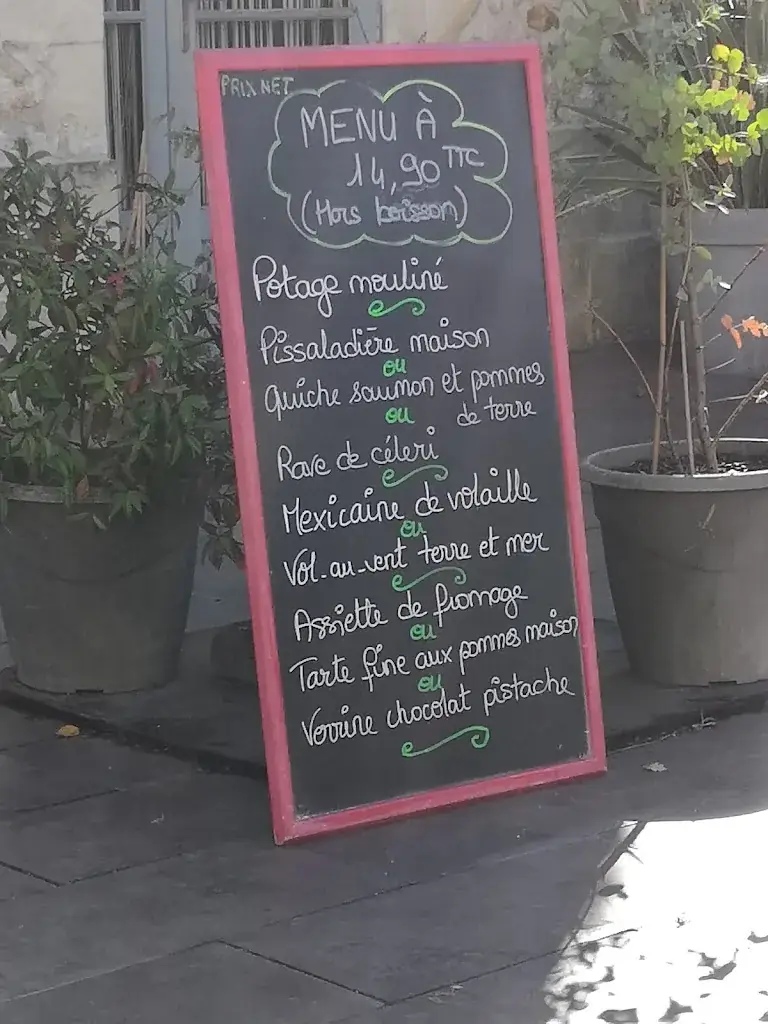 PRIX NET
MENU À
14,90 TTC
(Hors boisson)
Potage mouliné
Pissaladière maison
ou
Quiche saumon et pommes
ou de terre
Rave de céleri
Mexicaine de volaille
ou
Vol-au-vent terre et mer
Assiette de fromage
ou
Tarte fine aux pommes maison
ou
Verrine chocolat pistache